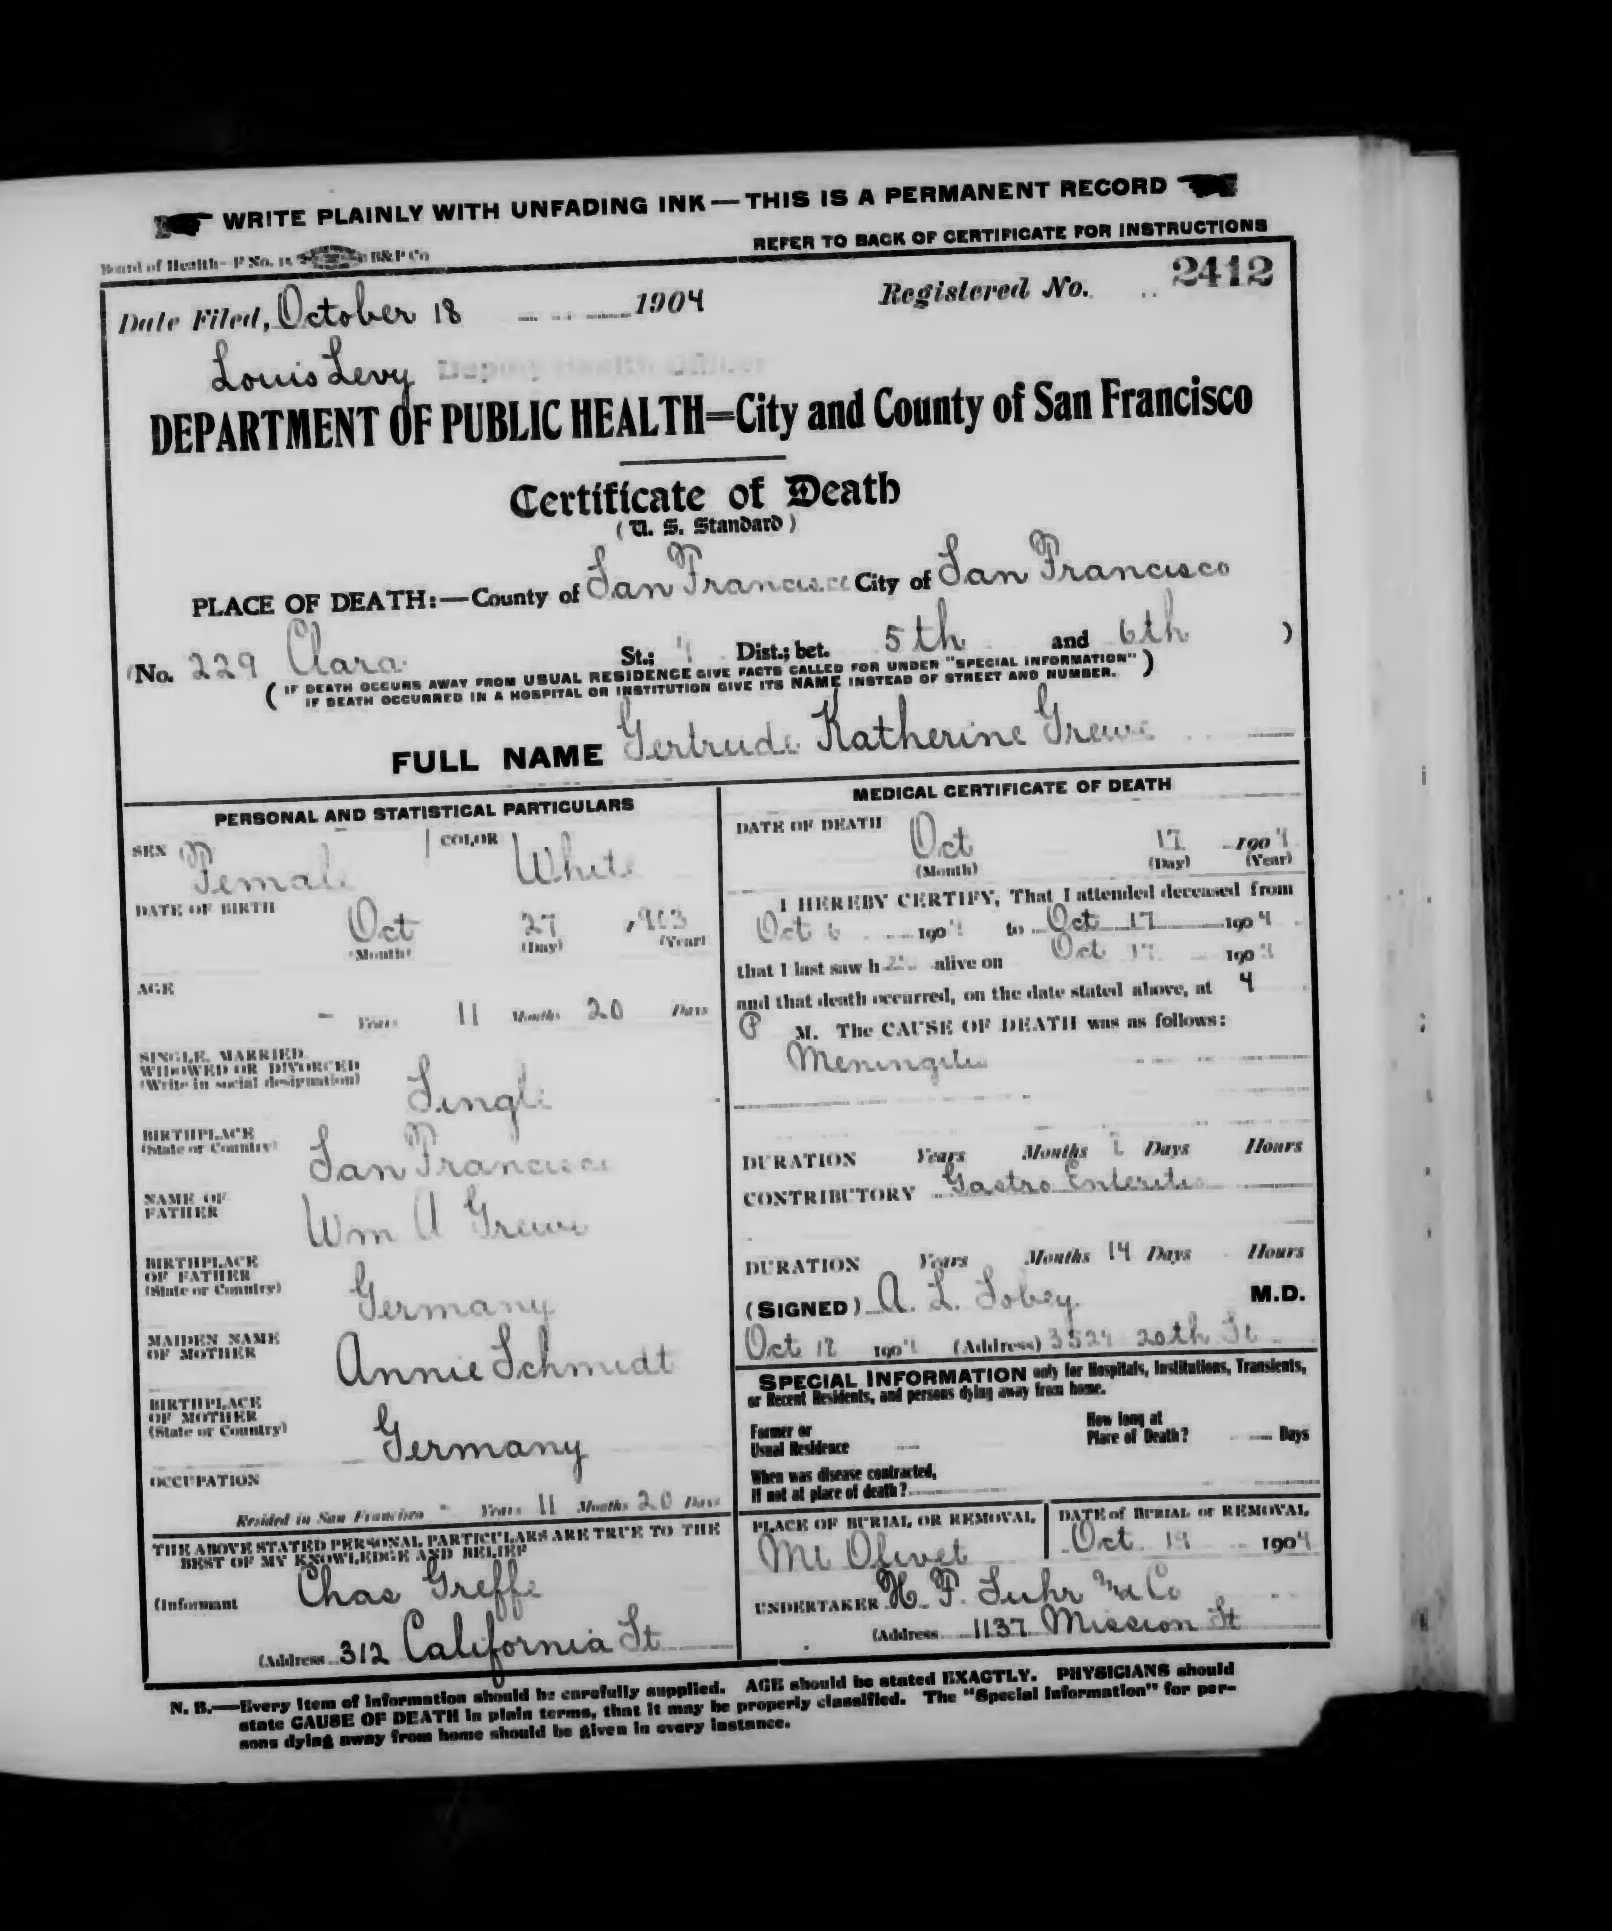 WRITE PLAINLY WITH UNFADING INK—THIS IS A PERMANENT RECORD
REFER TO BACK OF CERTIFICATE FOR INSTRUCTIONS
Board of Health—F No. 15 B&P Co
Date Filed, October 18 1904 Registered No. 2412
Louis Levy Deputy Health Officer
DEPARTMENT OF PUBLIC HEALTH=City and County of San Francisco
Certificate of Death
(U. S. Standard)
PLACE OF DEATH:—County of San Francisco City of San Francisco
(No. 229 Clara St.; 4 Dist.; bet. 5th and 6th )
( IF DEATH OCCURS AWAY FROM USUAL RESIDENCE GIVE FACTS CALLED FOR UNDER "SPECIAL INFORMATION" )
IF DEATH OCCURRED IN A HOSPITAL OR INSTITUTION GIVE ITS NAME INSTEAD OF STREET AND NUMBER.
FULL NAME Gertrude Katherine Grewe
PERSONAL AND STATISTICAL PARTICULARS
SEX Female COLOR White
DATE OF BIRTH Oct 27 , 903
(Month) (Day) (Year)
AGE
– Years 11 Months 20 Days
SINGLE, MARRIED,
WIDOWED OR DIVORCED
(Write in social designation) Single
BIRTHPLACE
(State or Country) San Francisco
NAME OF
FATHER Wm A Grewe
BIRTHPLACE
OF FATHER
(State or Country) Germany
MAIDEN NAME
OF MOTHER Annie Schmidt
BIRTHPLACE
OF MOTHER
(State or Country) Germany
OCCUPATION
Resided in San Francisco - Years 11 Months 20 Days
THE ABOVE STATED PERSONAL PARTICULARS ARE TRUE TO THE
BEST OF MY KNOWLEDGE AND BELIEF
(Informant Chas Greffe
(Address 312 California St
MEDICAL CERTIFICATE OF DEATH
DATE OF DEATH Oct 17 1904
(Month) (Day) (Year)
I HEREBY CERTIFY, That I attended deceased from
Oct 6 1904 to Oct 17 1904
that I last saw h alive on Oct 17 1904
and that death occurred, on the date stated above, at 4
P M. The CAUSE OF DEATH was as follows:
Meningitis
DURATION Years Months Days Hours
CONTRIBUTORY Gastro Enteritis
DURATION Years Months 14 Days Hours
(SIGNED) A. L. Sobey M.D.
Oct 18 1904 (Address) 3524 20th St
SPECIAL INFORMATION only for Hospitals, Institutions, Transients,
or Recent Residents, and persons dying away from home.
Former or
Usual Residence
How long at
Place of Death? Days
When was disease contracted,
If not at place of death?
PLACE OF BURIAL OR REMOVAL DATE of BURIAL or REMOVAL
Mt Olivet Oct 19 1904
UNDERTAKER H. F. Suhr and Co
(Address 1137 Mission St
N. B.—Every item of information should be carefully supplied. AGE should be stated EXACTLY. PHYSICIANS should
state CAUSE OF DEATH in plain terms, that it may be properly classified. The "Special Information" for per-
sons dying away from home should be given in every instance.